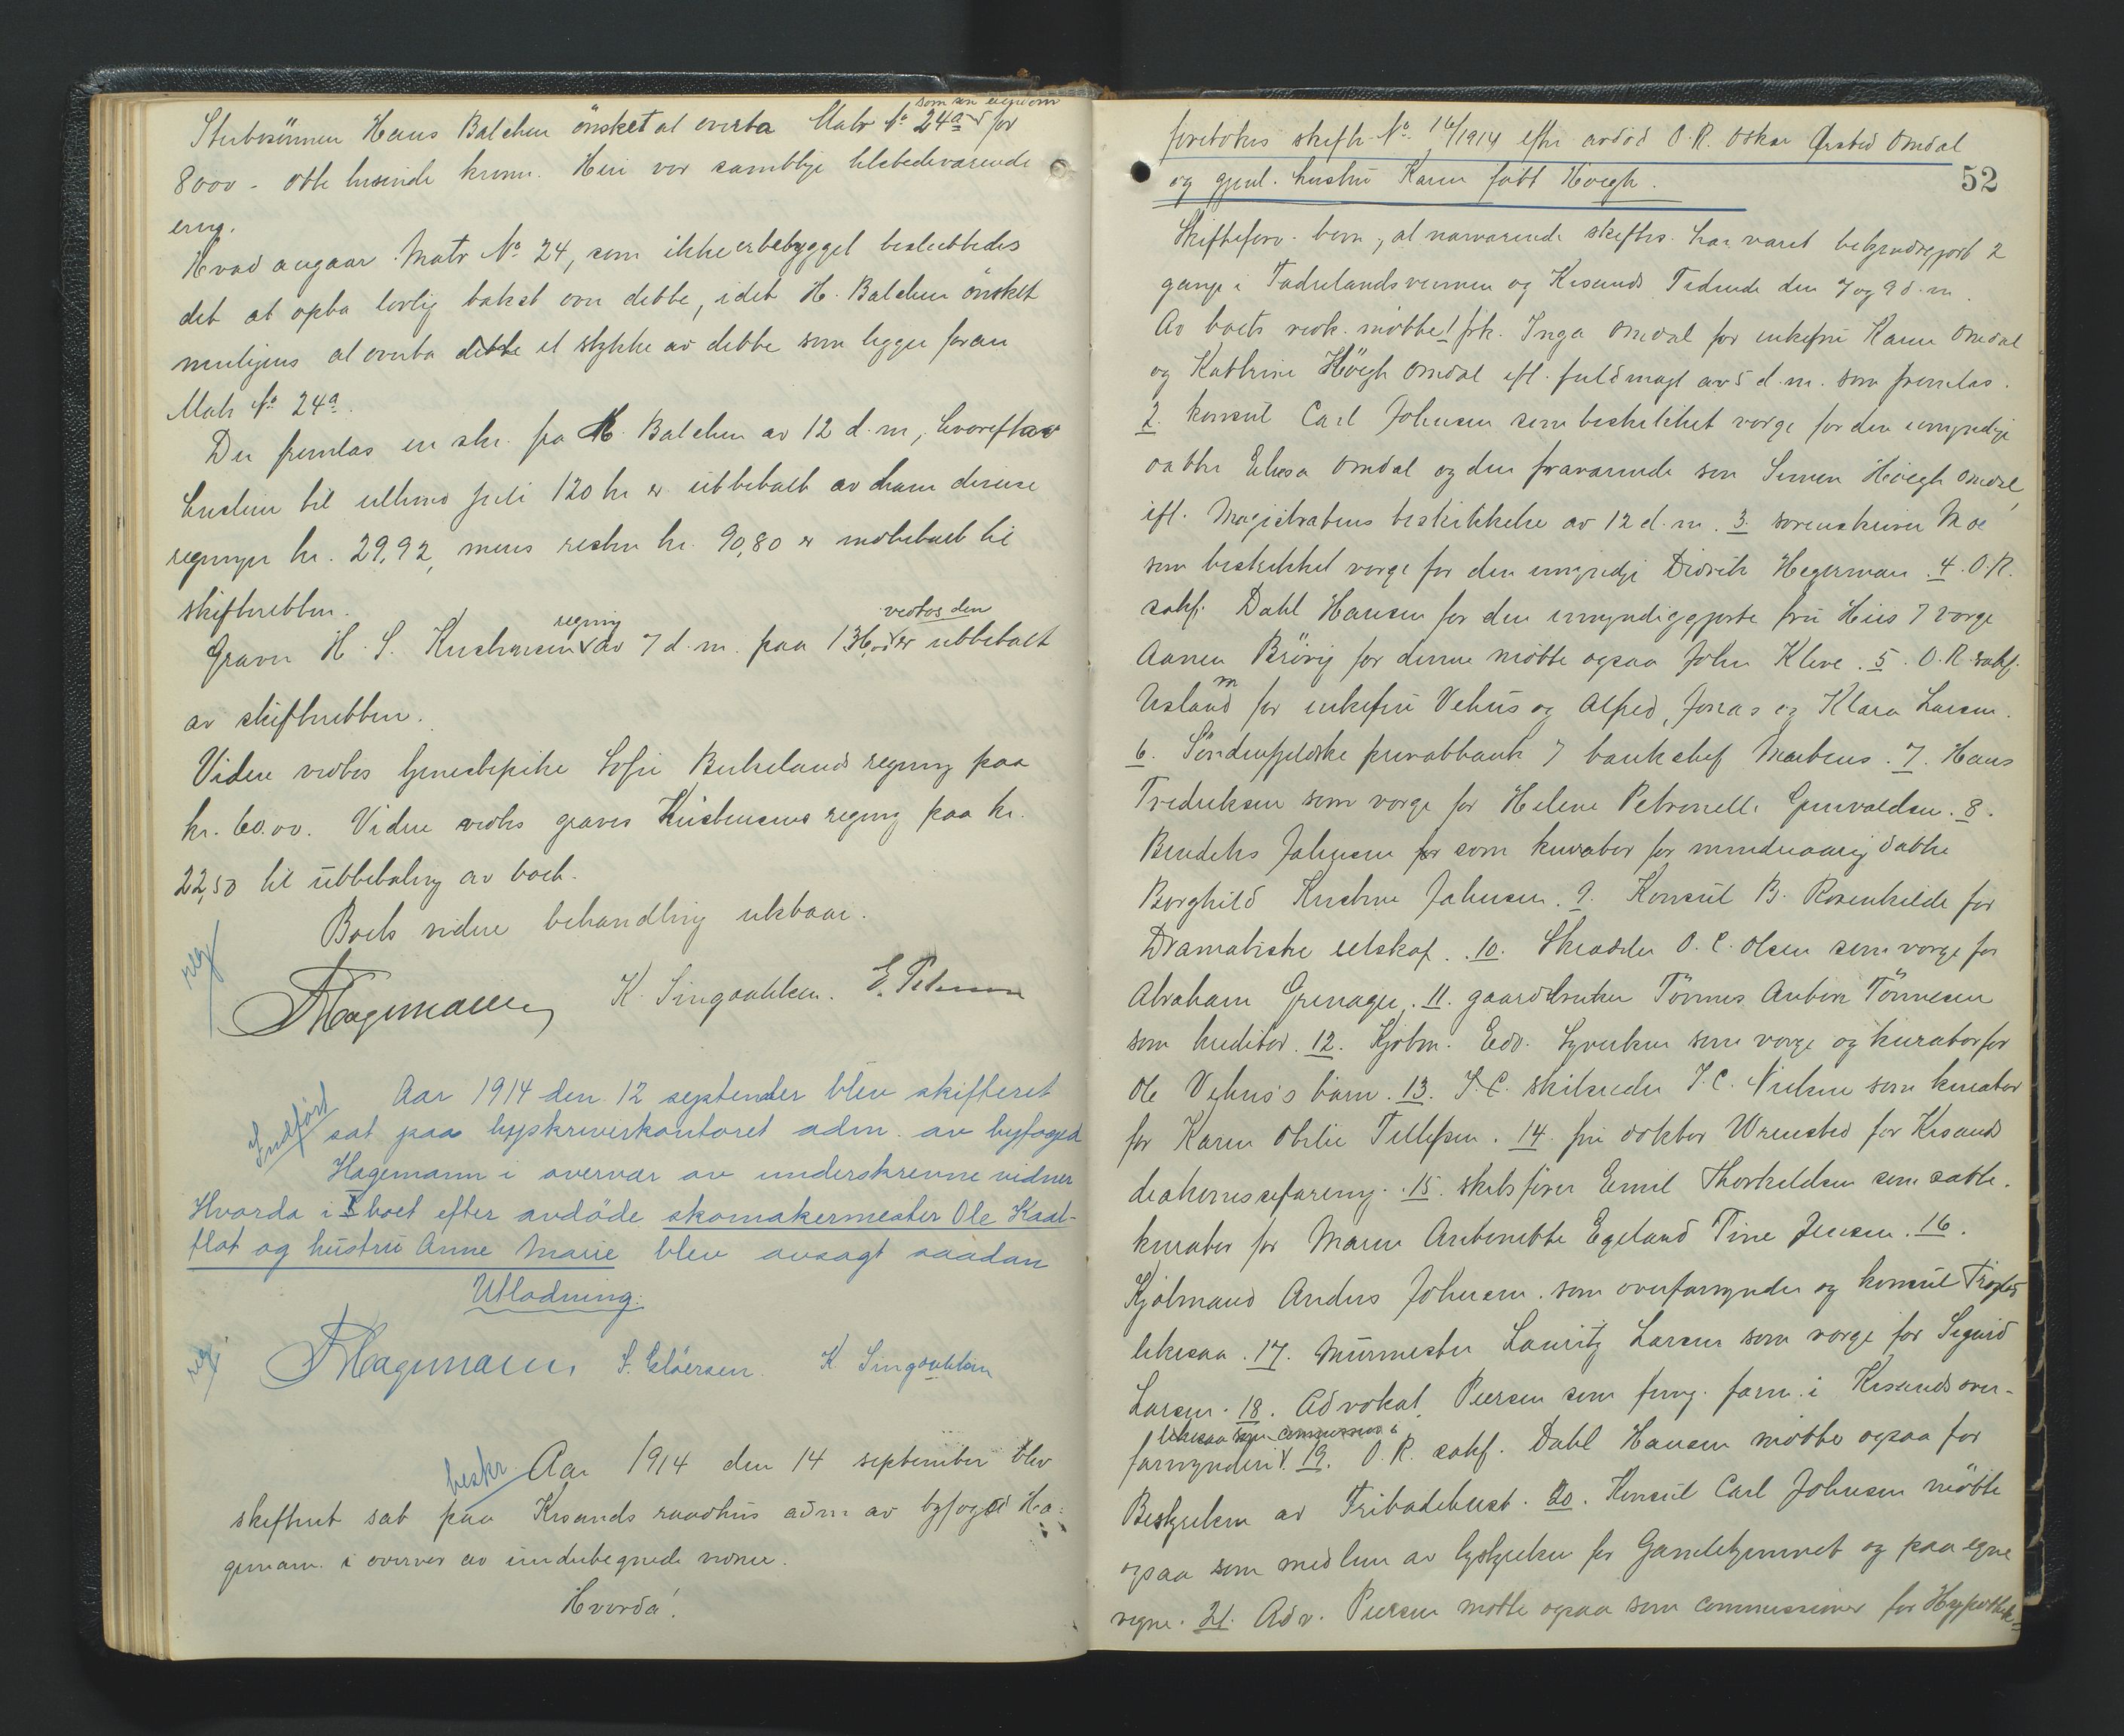 som sin eiendom
Stubesönnen Hans Balchen önsket at overta Matr № 24a for
8000 - otte tusinde kroner. Heri var samtlige tilstedeværende
enig.
Hvad angaar Matr № 24, som ikke er bebygget besluttedes
det at opta lovlig takst over dette, idet H. Balchen önsket
muligens at overta dette et stykke av dette som ligger foran
Matr № 24a.
Der fremlas en skr. fra H. Balchen av 12 d.m., hvorefter
husleie til ultimo juli 120 kr er utbetalt av ham diverse
regninger kr. 29,92, mens resten kr. 90,80 er indbetalt til
skifteretten.
regning vedtos den
Graver H. S. Kristensen av 7 d.m. paa 136,00 er utbetalt
av skifteretten.
Videre vedtos tjenestepike Sofie Birkelands regning paa
kr. 60.00. Videre vedtos graver Kristensens regning paa kr.
22,50 til utbetaling av boet.
Boets videre behandling utstaar.
reg
Hagemann K. Singsahlsen. E. Petersen
Aar 1914 den 12 september blev skifteret
Indført
sat paa byskriverkontoret adm. av byfoged
Hagemann i overvær av underskrevne vidner
Hvorda i boet efter avdöde skomakermester Ole Kaat-
flot og hustru Anne Marie blev avsagt saadan
Utlodning:
reg.
Hagemann S. Eloersen. K. Singsahlsen
beskr. Aar 1914 den 14 september blev
skifteret sat paa Krsands raadhus adm av byfoged Ha-
gemann i overvær av undertegnede vidner.
Hvorda!
52
foretokes skifte № 16/1914 efter avdöd O.R. Oskar Ørsted Omdal
og gjenl. hustru Karen født Høegh.
Skifteforv. bem, at nærværende skiftes. har været bekjendtgjort 2
gange i Fædrelandsvennen og Krsands Tidende den 7 og 9 d.m.
Av boets vedk. mötte 1 frk. Inga Omdal for enkefru Karen Omdal
og Kathrine Höegh Omdal ifl. fuldmagt av 5 d.m. som fremlas.
2. konsul Carl Johnsen som beskikket verge for den umyndige
datter Elisa Omdal og den fraværende søn Simen Höegh Omdal,
ifl. Magistratens beskikkelse av 12 d.m. 3. sorenskriver Moe
som beskikket verge for den umyndige Didrik Hegerman. 4. O.R.
sakf. Dahl Hansen for den umyndiggjorte fru Hies 7 verge
Aanen Brövig for denne mötte ogsaa John Kleve. 5. O.R. sakf.
Usland m for enkefru Vehus og Alfred, Jonas og Klara Larsen.
6. Söndenfjeldske privatbank 7 bankchef Martens. 7. Hans
Fredriksen som verge for Helene Petronelle Grunvaldsen. 8.
Bendiks Jahnsen for som kurator for mindreaarig datter
Borghild Kristine Jahnsen. 9. Konsul B. Rosenkilde for
Dramatiske selskap. 10. Skrædder O. C. Olsen som verge for
Abraham Grenager. 11. gaardbruker Tönnes Anton Tönnesen
som kreditor. 12. Kjøbm. Edv. Syvertsen som verge og kurator for
Ole Vehus's barn. 13. J.C. skibsreder J. C. Nielsen som kurator
for Karen Otilie Tellefsen. 14. fru doktor Wrensted for Krsands
diakonisseforening. 15. skibsfører Emil Thorkildsen som satte-
kurator for Maren Antonette Egeland Tine Jensen. 16.
Kjöbmand Anders Johnsen. som overformynder og konsul Trosted
likesaa. 17. Murmester Lauritz Larsen som verge for Sigurd
Larsen. 18. Advokat Piersen som fung. form. i Krsands over-
likesaa som commissionær i
formynderi. 19. O.R. sakf. Dahl Hansen mötte ogsaa for
Bestyrelsen av Fribadehuset. 20. Konsul Carl Johnsen mötte
ogsaa som medlem av bestyrelsen for Gamlehjemmet og paa egne
vegne. 21. Adv. Piersen mötte ogsaa som commissionær for Hypothek-